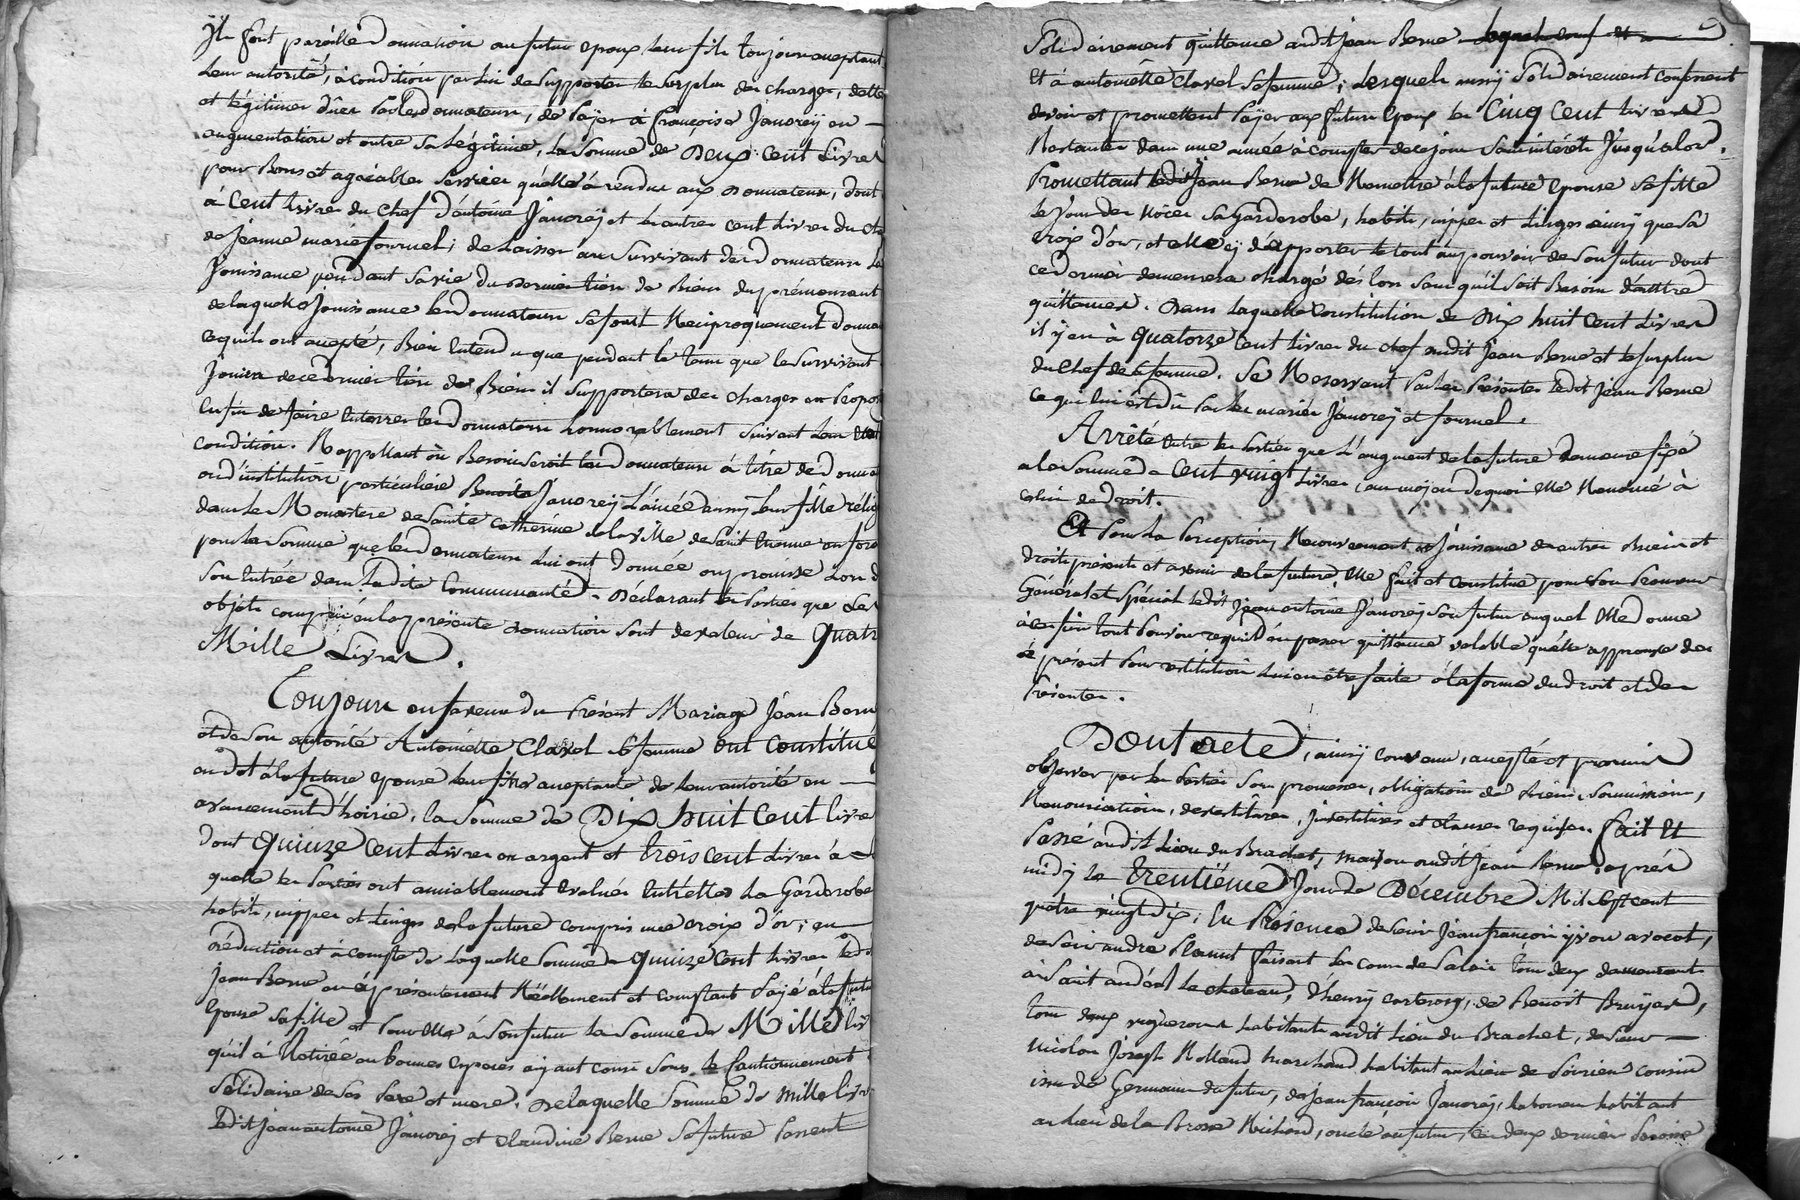 Ils font pareille donnation au futur epoux leur fils toujours aceptant
leur autorité, à condition par lui de supporter le surplus des charges, dettes
et légitimes dües par les donnateurs, de païer à françoise Janoreÿ en —
augmentation et outre sa légitime, la somme de Deux cent livres
pour bons et agréables services quelle à rendue aux donnateurs, dont
à Cent livres du chef d'antoine Janoreÿ et les autres cent livres du ch
de Jeanne marie fournel; de laisser au survivant des donnateurs la
Jouissance pendant sa vie du dernier tiers des biens du prémourant
de laquelle Jouissance les donnateurs se font Reciproquement donna
ce qu'ils ont acepté, Bien entendu que pendant le tems que le survivant
Jouira de ce dernier tiers des Biens il supportera des charges en propor
enfin de faire enterrer les donnateurs honnorablement suivant leur état
condition. Rappellant où Besoin seroit les donnateurs à titre de donna
ou d'institution particulière Benoite Janoreÿ L'ainée aussÿ leur fille rélig
dans le Monastere de Sainte Catherine de la ville de Saint Etienne en fore
pour la somme que les donnateurs lui ont donnée ou promise lors d
son entrée dans ladite Communauté. Déclarant les parties que Les
objets compris en la présente donnation sont de valeur de Quatr
Mille Livres.
Toujours en faveur du présent Mariage Jean Berne
et de son autorité Antoinette Clavel sa femme ont constitué
en dot à la future epouse leur fille aceptante de leur autorité en —
avancement d'hoirie, la somme de Dix huit Cent livre
dont Quinze Cent Livres en argent et trois cent Livres à L
quelle les parties ont amiablement évalué entr'elles la Garderobe
habits, nippes et linges de la future compris une croix d'or; en
déduction et à compte de laquelle somme de Quinze Cent livres led
Jean Berne a cÿ présentement Réellement et comptant païé à la futu
épouse sa fille et pour elle à son futur la somme de Mille liv
qu'il à Retirée en bonnes especes aÿant cours sous le Cautionnement
Solidaire de ses pere et mere. De laquelle somme de mille livre
Ledit Jean antoine Janoreÿ et Claudine Berne sa future passent
Solidairement quittance audit Jean Berne
Et à antoinette Clavel sa femme; Lesquels aussÿ Solidairement confessent
devoir et promettent païer aux futurs epoux les Cinq Cent livres
Restantes dans une année à compter de ce jour sans intérêts Jusqu'alors.
Promettant ledit Jean Berne de Remettre à la future epouse sa fille
le Jour des Nôces sa Garderobe, habits, nippes et Linges ainsÿ que sa
Croix d'or, et elle d'ÿ apporter le tout au pouvoir de son futur dont
ce dernier demeurera chargé dés lors sans qu'il soit Besoin d'autre
quittances. Dans laquelle Constitution de Dix huit Cent Livres
il ÿ en à Quatorze Cent livres du chef audit Jean Berne et le surplus
du chef de sa femme. Se Reservant par les presentes ledit Jean Berne
ce qui lui est dû par les mariés Janoreÿ et fournel.
Arrêté entre les parties que L'augment de la future demeure fixé
a la somme de Cent vingt Livres, au moÿen dequoi elle Renonce à
celui de droit.
Et pour la perception, Recouvrement et Jouissance des autres Biens et
droits présents et avenir de la future, elle fait et constitue pour son procureur
Général et Spécial ledit Jean antoine Janoreÿ son futur auquel elle donne
à ces fins tout pouvoir requis d'en passer quittance valable qu'elle approuve dès
à présent pour restitution lui en être faite à la forme du droit et des
présentes.
Dont acte, ainsÿ convenu, acepté et promis
observer par les parties sous promesses, obligation de biens, soumissions,
Renonciations, devestitures, investitures et clauses requises. fait Et
Passé audit Lieu du Brachet, maison audit Jean Berne, aprés
midÿ le trentième Jour de Décembre Mil sept cent
quatre vingt dix; En Présence de Sieur Jean françois ÿvon avocat,
de Sieur andré Planut faisant les cour de Palais tous deux demeurants
à Saint andéol le chateau, d'henrÿ, de Benoit Bruÿas,
tous deux vignerons habitants audit Lieu du Brachet, de Sieur —
Nicolas Joseph Rolland marchand habitant au Lieu de Sourieu cousin
issu de Germain du futur, de Jean françois Janoreÿ, laboureur habitant
au Lieu de la Brosse Richard, oncle au futur, ces deux derniers paroisse